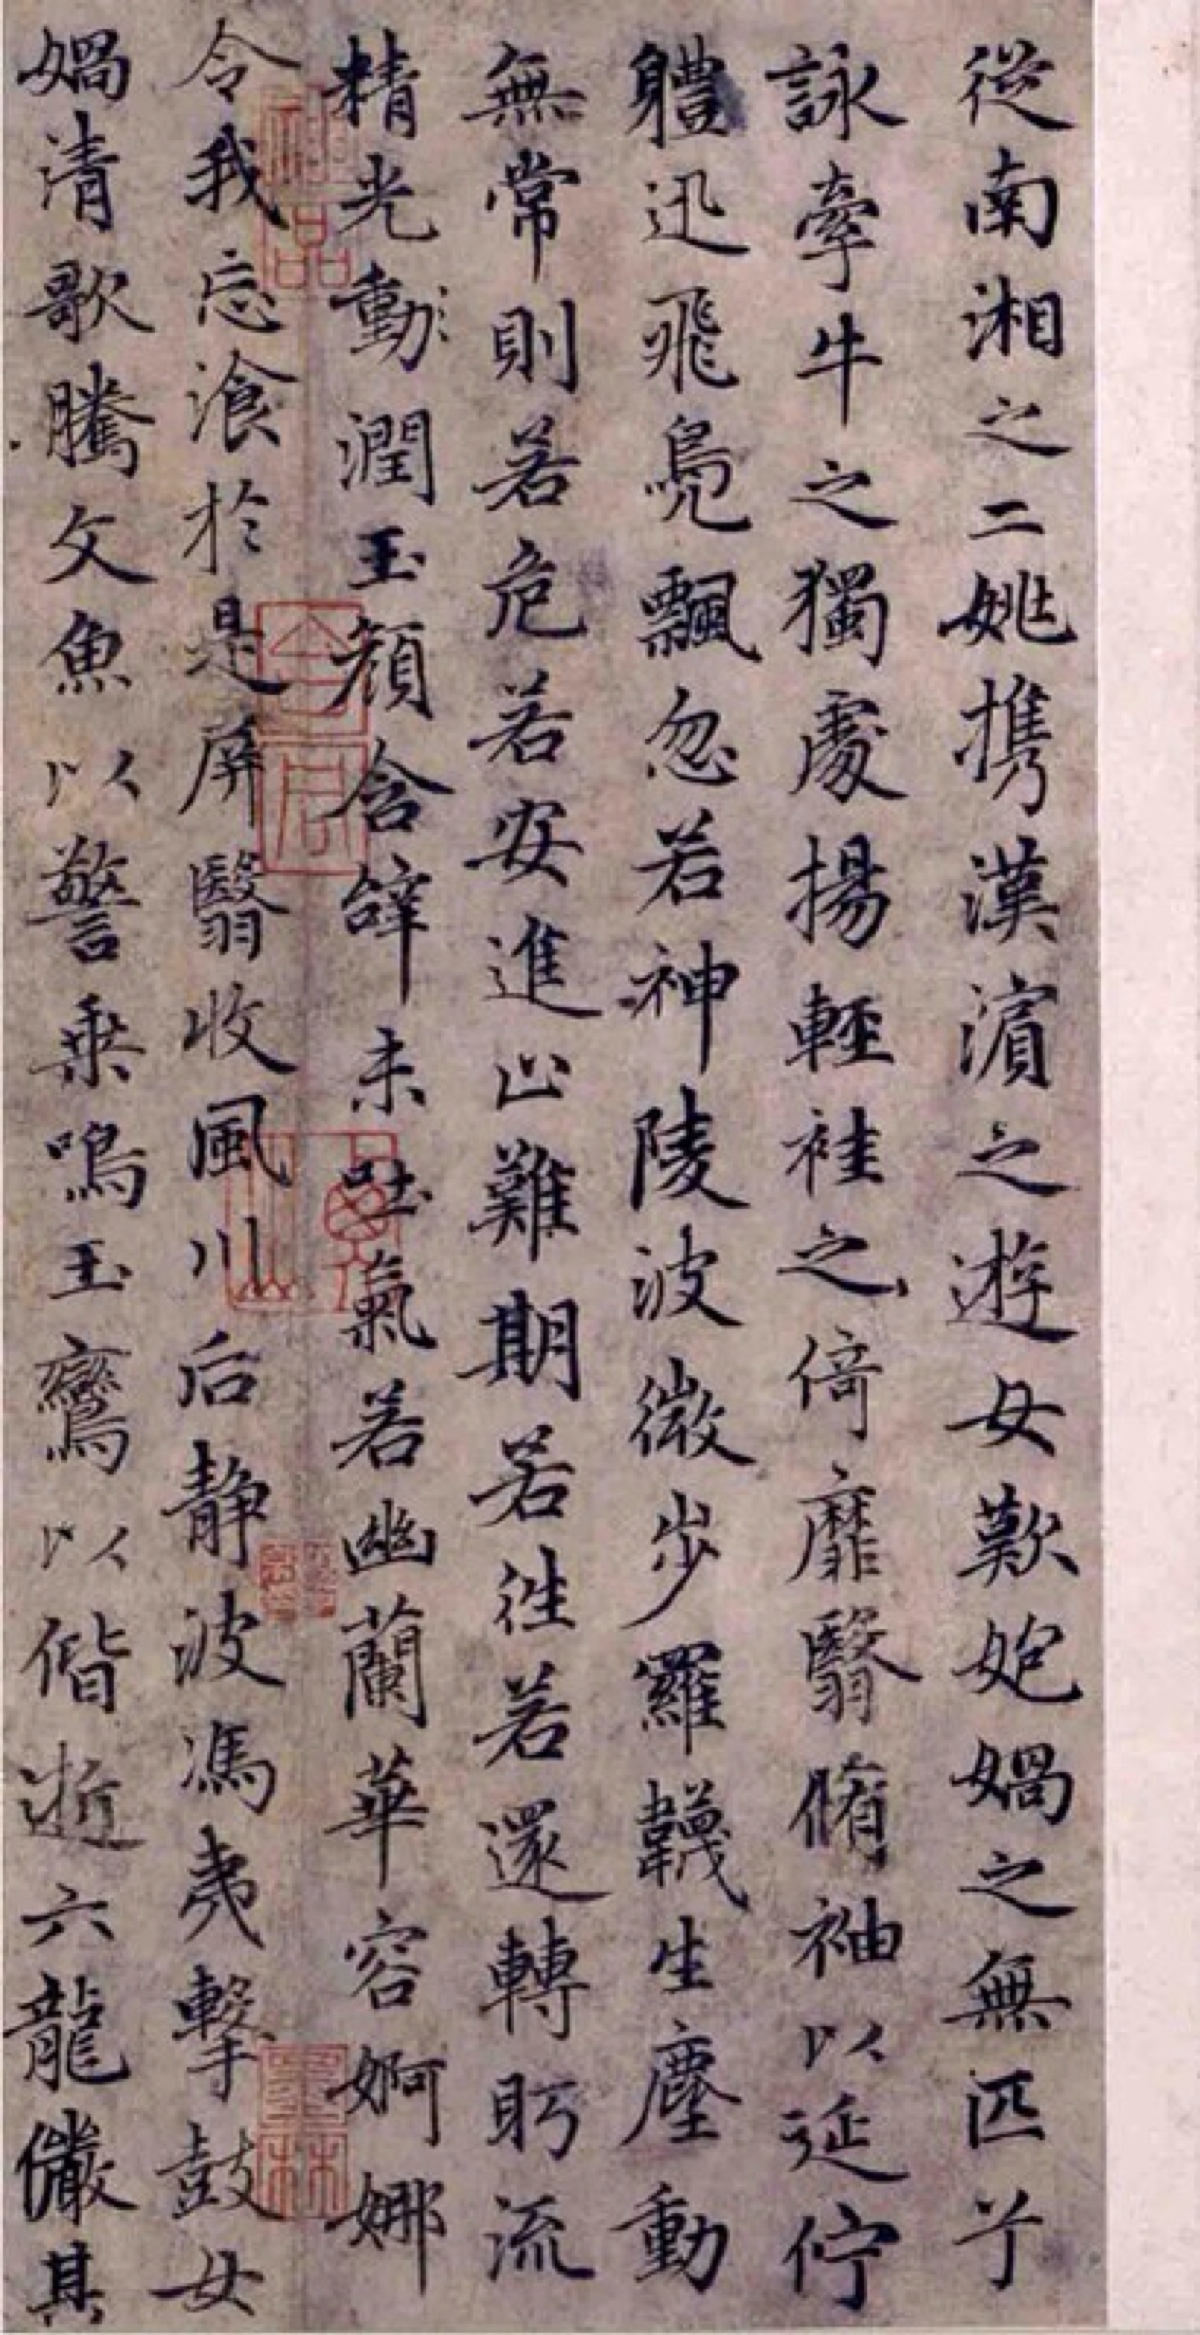 從南湘之二姚攜漢濱之遊女歎㚿媧之無匹兮
詠牽牛之獨處揚輕袿之倚靡翳脩袖以延佇
體迅飛鳧飄忽若神陵波微步羅韈生塵動
無常則若危若安進止難期若往若還轉眄流
精光動潤玉顏含辭未吐氣若幽蘭華容婀娜
令我忘飡於是屏翳收風川后静波馮夷擊鼓女
媧清歌騰文魚以警乗鳴玉鸞以偕逝六龍儼其
神品
墨林